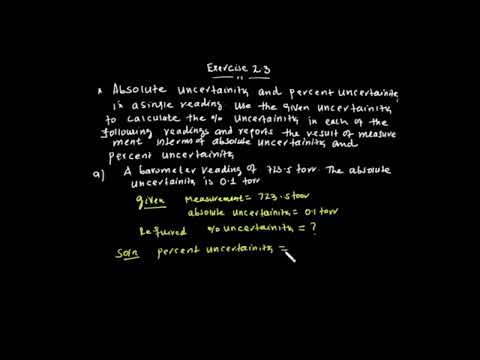 Exercise 2.3
* Absolute uncertainity and percent uncertainity
in a single reading. Use the given uncertainity
to calculate the % uncertainity in each of the
following readings and reports the result of measure
ment interms of absolute uncertainity and
percent uncertainity
a) A barometer reading of 723.5 torr. The absolute
uncertainity is 0.1 torr
given measurement = 723.5 torr
absolute uncertainity = 0.1 torr
Required % uncertainity = ?
Soln percent uncertainity =